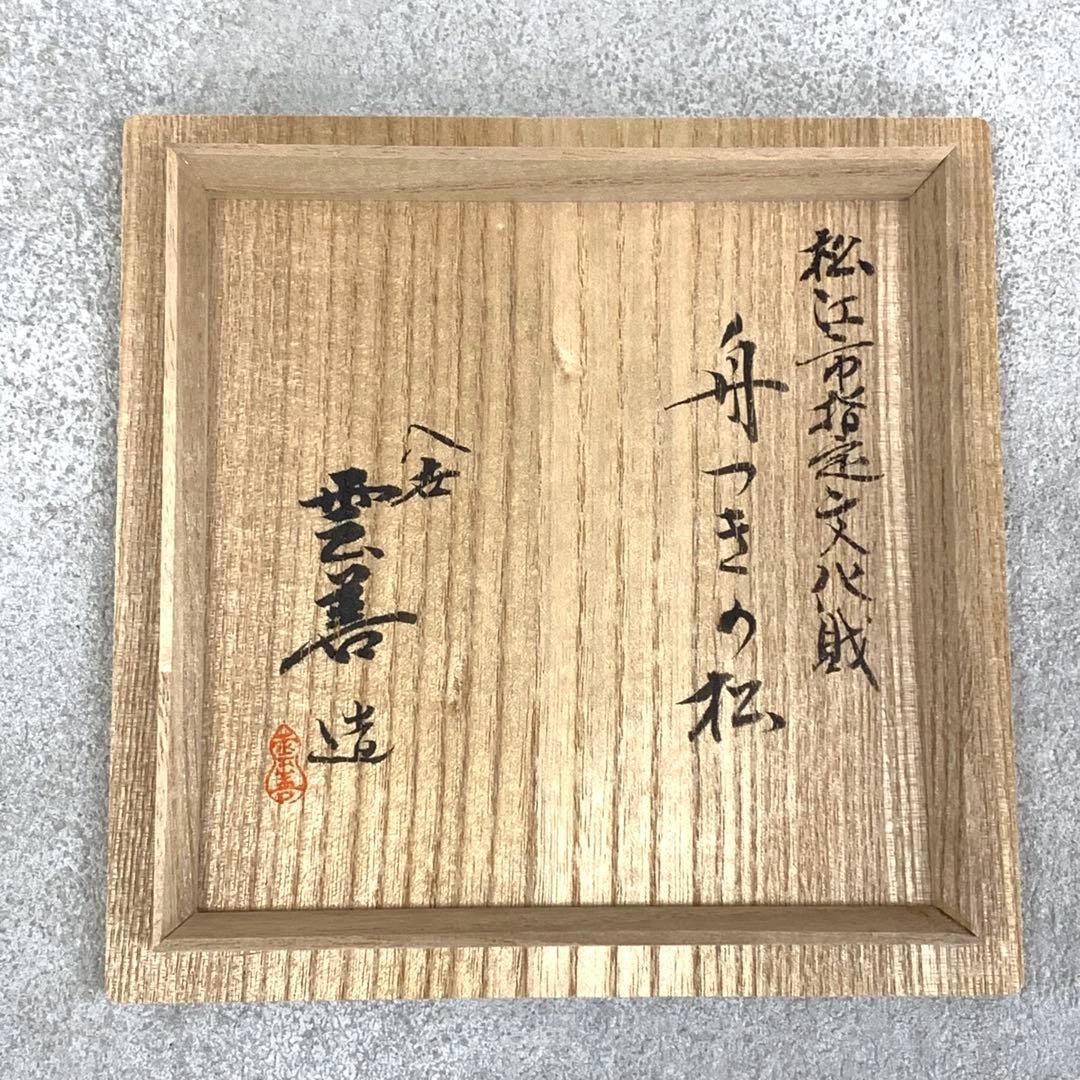 松江市指定文化財
舟つきの松
八世
雲善造
雲善